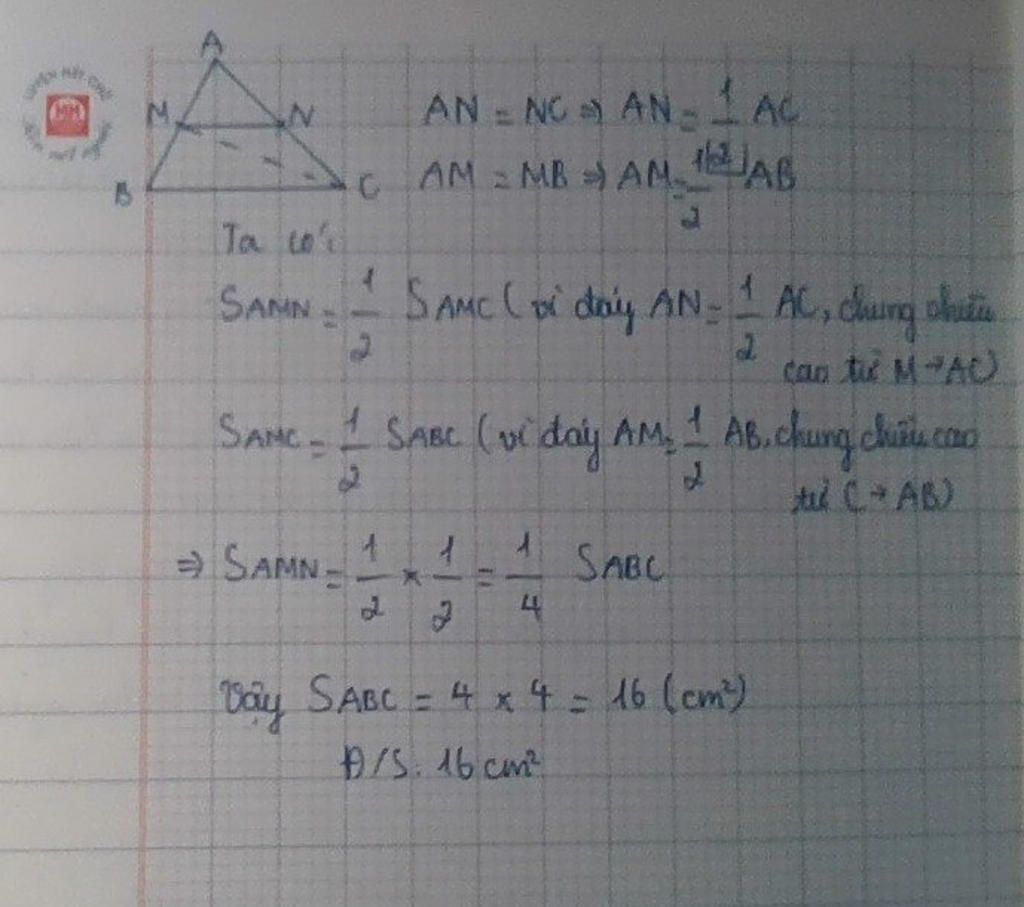 A
M N
B C
AN = NC ⇒ AN = 1/2 AC
AM = MB ⇒ AM = 1/2 AB
Ta có:
SAMN = 1/2 SAMC (vì đáy AN = 1/2 AC, chung chiều
cao từ M → AC)
SAMC = 1/2 SABC (vì đáy AM = 1/2 AB, chung chiều cao
từ C → AB)
⇒ SAMN = 1/2 × 1/2 = 1/4 SABC
Vậy SABC = 4 × 4 = 16 (cm²)
Đ/S: 16 cm²